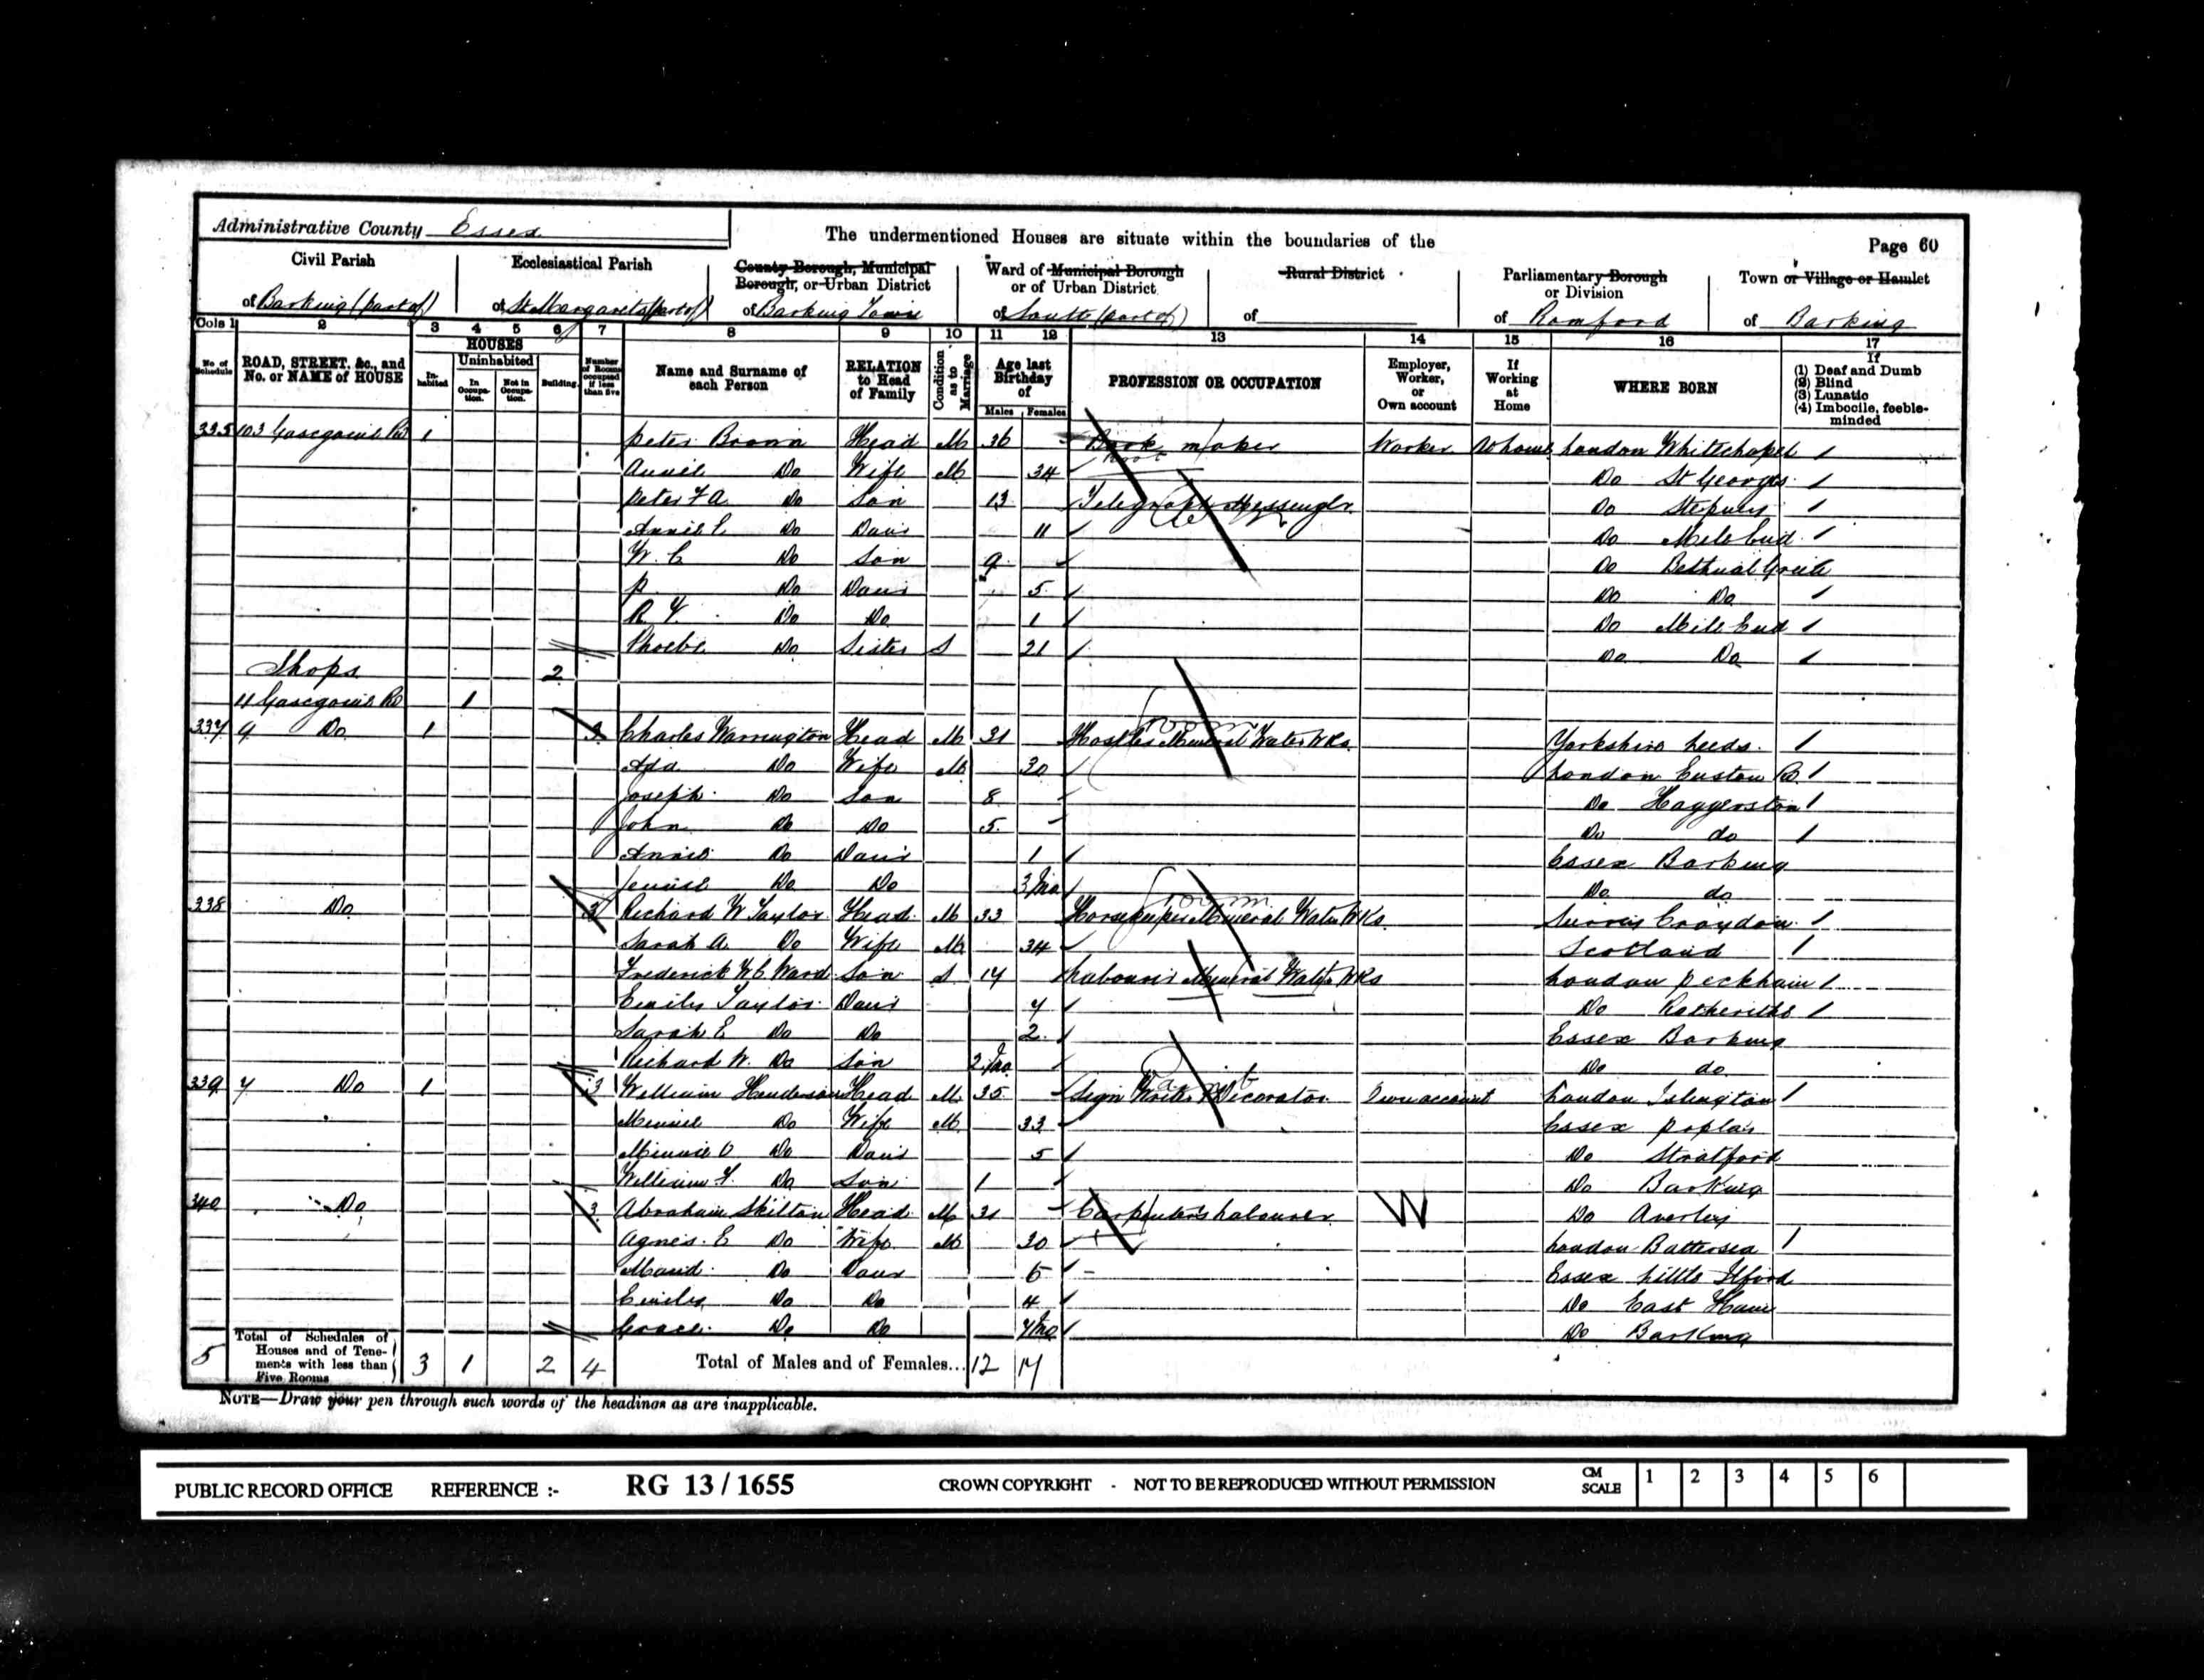 Administrative County Essex
The undermentioned Houses are situate within the boundaries of the
Page 60
Civil Parish
of Barking (part of)
Ecclesiastical Parish
of St Margarets (part of)
County Borough, Municipal Borough, or Urban District
of Barking Town
Ward of Municipal Borough or of Urban District
of South (part of)
Rural District
of
Parliamentary Borough or Division
of Romford
Town or Village or Hamlet
of Barking
Cols 1 2 3 4 5 6 7 8 9 10 11 12 13 14 15 16 17
No. of Schedule
ROAD, STREET, &c., and No. or NAME of HOUSE
HOUSES
Inhabited
Uninhabited
In Occupation.
Not in Occupation.
Building.
Number of Rooms occupied if less than five
Name and Surname of each Person
RELATION to Head of Family
Condition as to Marriage
Age last Birthday of
Males Females
PROFESSION OR OCCUPATION
Employer, Worker, or Own account
If Working at Home
WHERE BORN
If
(1) Deaf and Dumb
(2) Blind
(3) Lunatic
(4) Imbecile, feeble-minded
335 103 Gascoigne Rd 1 Peter Brown Head M 36 maker Worker At home London Whitechapel
Annie Do Wife M 34 Do St Georges
Peter F A Do Son 13 Telegraph Messenger Do Stepney
Annie E Do Daur 11 Do Mile End
W. C Do Son 9 Do Bethnal Green
P Do Daur 5 Do Do
R Y Do Do 1 Do Mile End
Phoebe Do Sister S 21 Do Do
Shops 2
11 Gascoigne Rd 1
337 9 Do 1 3 Charles Warrington Head M 31 Mineral Water Wks Yorkshire Leeds
Groom
Ada Do Wife M 30 London Euston Rd
Joseph Do Son 8 Do Haggerston
John Do Do 5 Do do
Annie Do Daur 1 Essex Barking
Jennie Do Do 3 mo Do do
338 Do 3 Richard W Taylor Head M 33 Horsekeeper Mineral Water Wks Surrey Croydon
Groom
Sarah A Do Wife M 34 Scotland
Frederick W C Ward Son S 14 Labourer Mineral Water Wks London Peckham
Emily Taylor Daur 4 Do Rotherithe
Sarah E Do Do 2 Essex Barking
Richard W. Do Son 2 mo Do do
339 7 Do 1 3 William Henderson Head M 35 Sign Writer Decorator Own account London Islington
Minnie Do Wife M 33 Essex Poplar
Minnie O Do Daur 5 Do Stratford
William F. Do Son 1 Do Barking
340 Do 3 Abraham Skilton Head M 31 Carpenters Labourer W Do Averley
Agnes. E Do Wife M 30 London Battersea
Maud Do Daur 6 Essex Little Ilford
Emily Do Do 4 Do East Ham
Grace Do Do 7 mo Do Barking
5 Total of Schedules of Houses and of Tenements with less than Five Rooms 3 1 2 4 Total of Males and of Females... 12 17
NOTE—Draw your pen through such words of the headings as are inapplicable.
PUBLIC RECORD OFFICE REFERENCE :- RG 13 / 1655 CROWN COPYRIGHT - NOT TO BE REPRODUCED WITHOUT PERMISSION CM SCALE 1 2 3 4 5 6